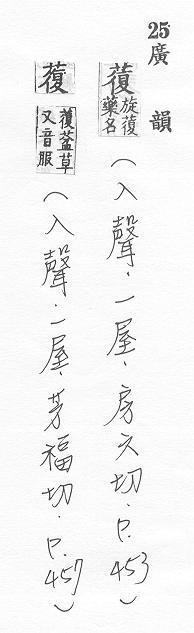 25廣韻
蕧旋蕧藥名(入聲.一屋.房六切.P.453)
蕧蕧葐草又音服(入聲.一屋.芳福切.P.457)